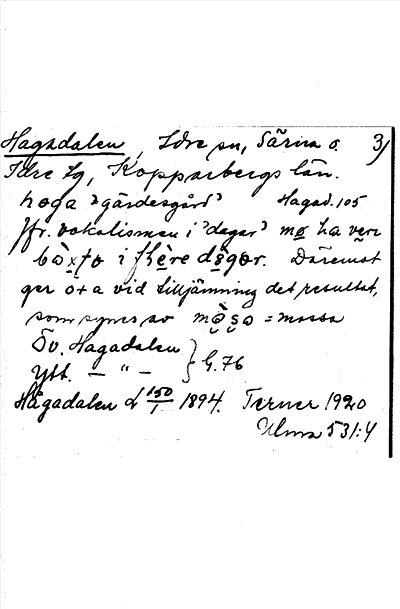 Hagadalen, Idre sn, Särna o. 3)
Idre tg, Kopparbergs län.
hoga "gärdesgård" Hagad. 105
Jfr. vokalismen i "dagar" mø ha vere
bòxto i fhère dògor. Däremot
ger o+a vid tilljämning det resultat,
som synes av mòso = mossa
Öv. Hagadalen } G. 76
Ytt. — " — 
Hågadalen d 150/1 1894. Terner 1920
Ulma 531:4